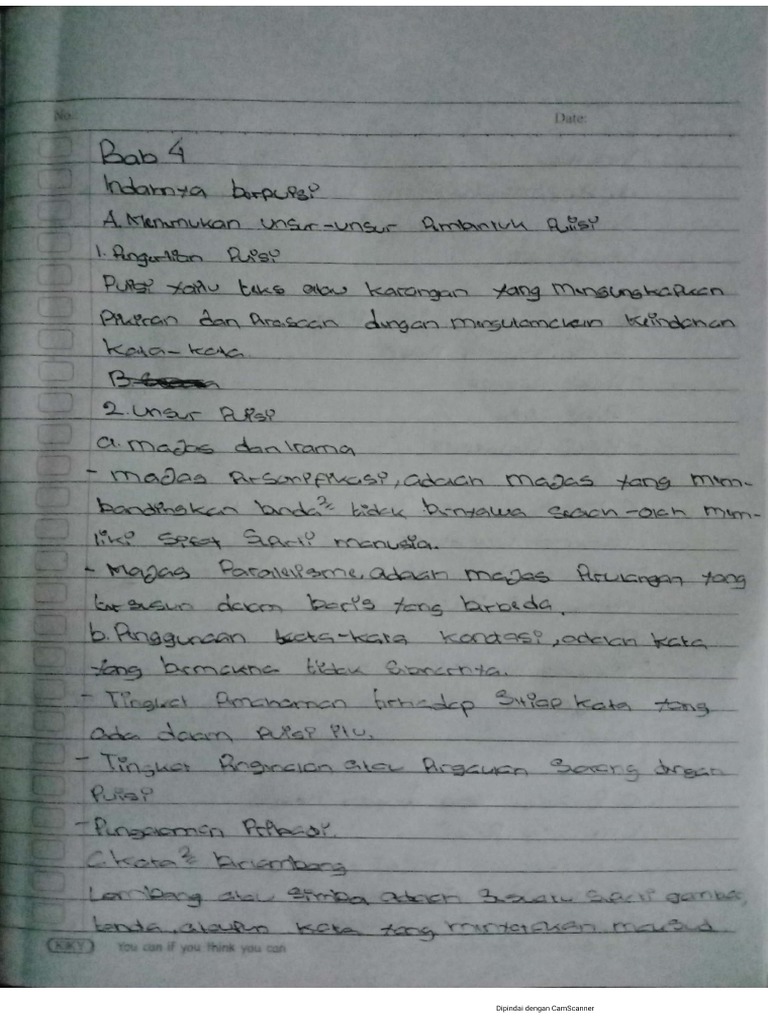 No:
Date:
Bab 4
Indahnya berpuisi
A. Menemukan unsur-unsur Pembentuk Puisi
1. Pengertian Puisi
Puisi yaitu teks atau karangan yang mengungkapkan
Pikiran dan Perasaan dengan mengutamakan keindahan
kata-kata.
B
2. Unsur Puisi
a. majas dan irama
- majas Personifikasi, adalah majas yang mem-
bandingkan benda² tidak bernyawa seolah-olah mem-
liki sifat seperti manusia.
- Majas Paralelisme, adalah majas Perulangan yang
tersusun dalam baris yang berbeda.
b. Penggunaan kata-kata konotasi, adalah kata
yang bermakna tidak sebenarnya.
- Tingkat Pemahaman terhadap setiap kata yang
ada dalam Puisi itu.
- Tingkat atau Pergaulan Seorang dengan
Puisi
- Pengalaman Pribadi.
C. Kata² berlambang
Lambang atau simbol adalah Sesuatu seperti gambar,
tanda, ataupun kata yang menyatakan maksud
KKY
You can if you think you can
Dipindai dengan CamScanner